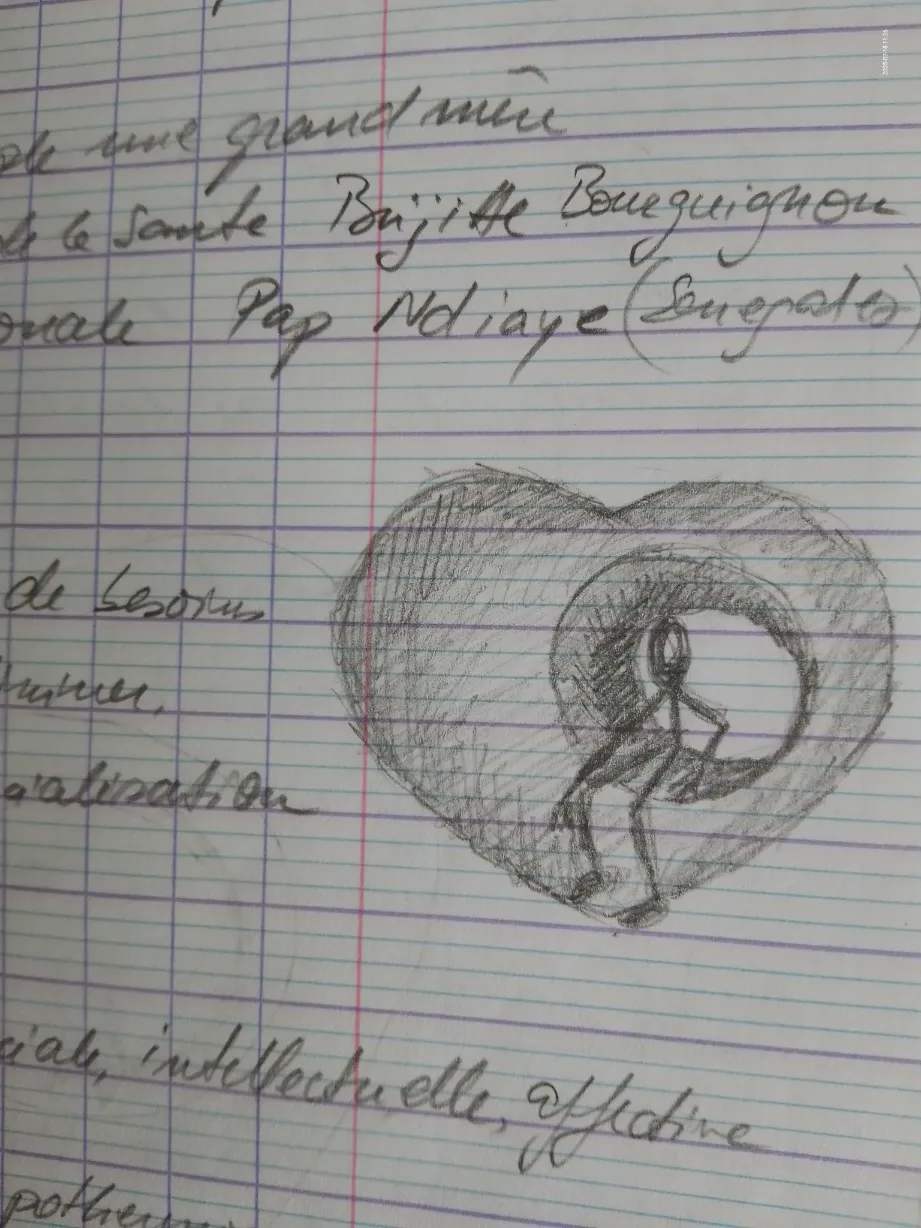 de une grand mère
de la Sante Brijitte Boueguignon
onale Pap Ndiaye (Senegalo)
de besoins
rimer,
ialisation
ciale, intellectuelle, affective